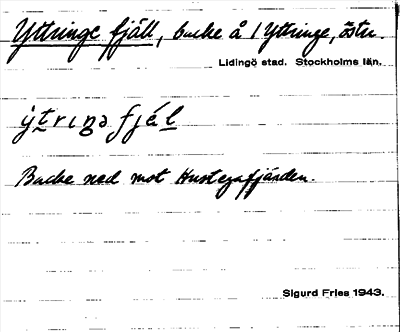 Yttringe fjäll, backe å 1 Yttringe, östr.
Lidingö stad. Stockholms län.
ýtrıŋə fjál
Backe ned mot Hustegafjärden.
Sigurd Fries 1943.